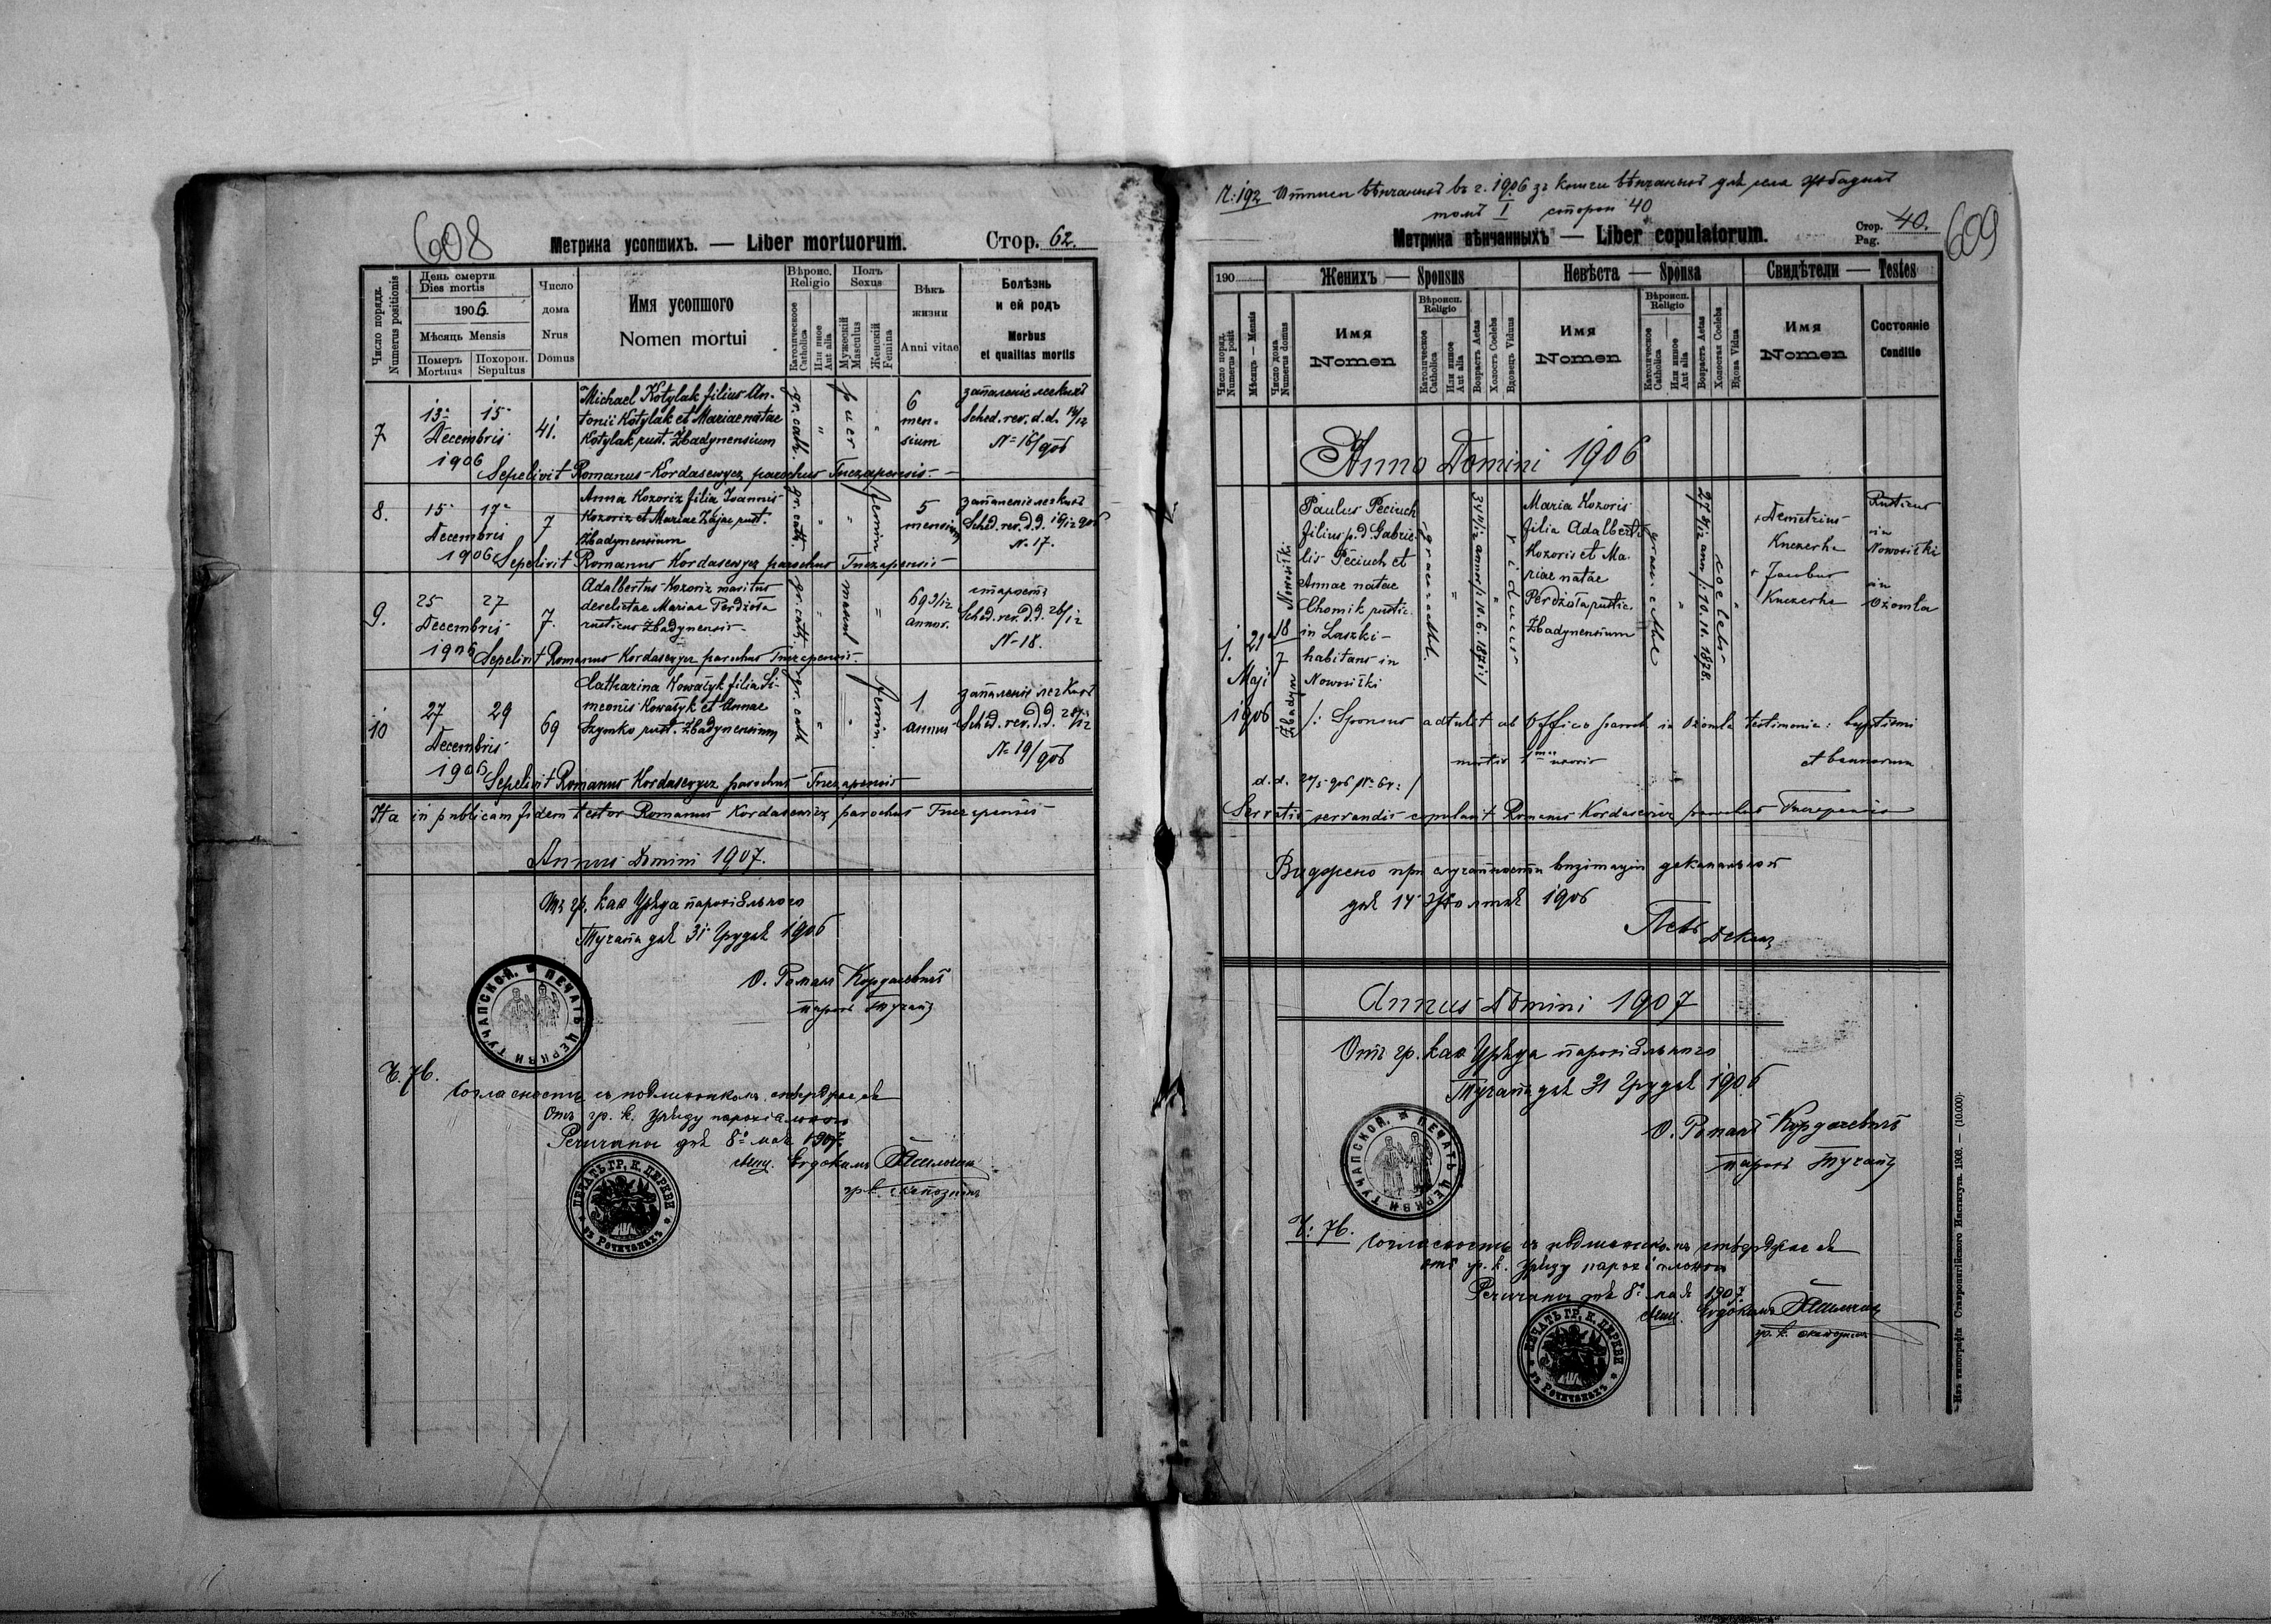 608
Метрика усопшихъ. — Liber mortuorum.
Стор. 62.
Число порядк.
Numerus positionis
День смерти
Dies mortis
1906.
Мѣсяць Mensis
Померъ
Mortuus
Похорон.
Sepultus
Число
дома
Nrus
Domus
Имя усопшого
Nomen mortui
Вѣроис.
Religio
Католическое
Catholica
Или иное
Aut alia
Полъ
Sexus
Мужескій
Masculus
Женскій
Femina
Вѣкъ
жизни
Anni vitae
Болѣзнь
и ей родъ
Morbus
et qualitas mortis
7
13. 15.
Decembris
1906
41.
Michael Kotylak filius An-
tonii Kotylak et Mariae natae
Kotylak rust. Żbadynensium
gr. cath.
"
puer
"
6
men-
sium
запаленіе легкихъ
Sched. rev. d.d. 14/12
N= 16/906
Sepelivit Romanus Kordasewycz parochus Tuczapensis
8.
15. 17.
Decembris
1906
7
Anna Kozoriz filia Ioannis
Kozoriz et Mariae Zając rust.
Żbadynensium
gr. cath.
"
"
femin
5
mensium
запаленіе легкихъ
Sched. rev. d.d. 16/12 906
N. 17.
Sepelivit Romanus Kordasewycz parochus Tuczapensis
9.
25 27
Decembris
1906
7.
Adalbertus Kozoriz maritus
derelictae Mariae Perdżoła
rusticus Żbadynensis
gr. cath.
"
mascul
"
69 3/12
annor.
старость
Sched. rev. d.d. 26/12
N-18.
Sepelivit Romanus Kordasewycz parochus Tuczapensis.
10
27 29
Decembris
1906
69
Catharina Kowalyk filia Si-
meonis Kowalyk et Annae
Szymko rust. Żbadynensium
gr. cath
"
"
femin.
1
annus
запаленіе легкихъ
Sched. rev. d.d. 28/12
N= 19/906
Sepelivit Romanus Kordasewycz parochus Tuczapensis
Ita in publicam fidem testor Romanus Kordasewicz parochus Tuczapensis
Annus Domini 1907.
Отъ гр. каѳ Уряда парохіяльного
Тучапы дня 31 Грудня 1906
О. Романъ Кордасевичъ
парохъ Тучапъ
ПЕЧАТЬ ЦЕРКВИ ТУЧАПСКОЙ.
Ч. 76.
Согласность съ подлинникомъ стверджає ся
Отъ гр. к. Уряду парохіяльного
Речичаны дня 8. мая 1907.
свящ. Евдокимъ
ПЕЧАТЬ ГР. К. ЦЕРКВИ въ Речичанахъ
Ч: 192 Отписи вѣнчанныхъ въ г. 1906 зъ книги вѣнчанныхъ для села Жбадынъ
томъ I сторон 40
Метрика вѣнчанныхъ — Liber copulatorum.
Стор.
Pag.
40.
609
190
Женихъ — Sponsus
Невѣста — Sponsa
Свидѣтели — Testes
Число поряд.
Numerus posit
Мѣсяць — Mensis
Число дома
Numerus domus
Имя
Nomen
Вѣроисп.
Religio
Католическое
Catholica
Или иное
Aut alia
Возрастъ Aetas
Холостъ Coelebs
Вдовецъ Viduus
Имя
Nomen
Вѣроисп.
Religio
Католическое
Catholica
Или инное
Aut alia
Возрастъ Aetas
Холостая Coelebs
Вдова Vidua
Имя
Nomen
Состояніе
Conditio
Anno Domini 1906
1.
21
Maji
1906
18 Nowosiłki
7 Żbadyń
Paulus Peciuch
filius p. d. Gabrie-
lis Peciuch et
Annae natae
Chomik rustic.
in Laszki
habitans in
Nowosiłki
graec. cathol.
"
"
viduus
Maria Kozoris
filia Adalberti
Kozoris et Ma-
riae natae
Perdżoła rustic.
Żbadynensium
graec. cathol
"
coelebs
"
+ Demetrius
Kuczerka
+ Jacobus
Kuczerka
Rusticus
in
Nowosiłki
in
Ożomla
/: Sponsus adtulit ab Officio paroch in Ożomla testimonia: baptismi
mortis 1mae uxoris et bannorum
d. d. 20/5 906 N= 64 :/
Servatis servandis copulavit Romanus Kordasewicz parochus Tuczapensis
Виджено при случайности визитаціи деканальной
дня 14 Жолтня 1906
Декан
Annus Domini 1907
Отъ гр. каѳ Уряда парохіяльного
Тучапы дня 31 Грудня 1906
О. Романъ Кордасевичъ
парохъ Тучапъ
ПЕЧАТЬ ЦЕРКВИ ТУЧАПСКОЙ.
Ч: 76.
Согласность съ подлинникомъ стверджає ся
отъ гр. к. Уряду парохіяльного
Речичаны дня 8. мая 1907.
свящ. Евдокимъ
ПЕЧАТЬ ГР. К. ЦЕРКВИ въ Речичанахъ
Изъ типографіи Ставропигійского Института. 1906. — (10.000)